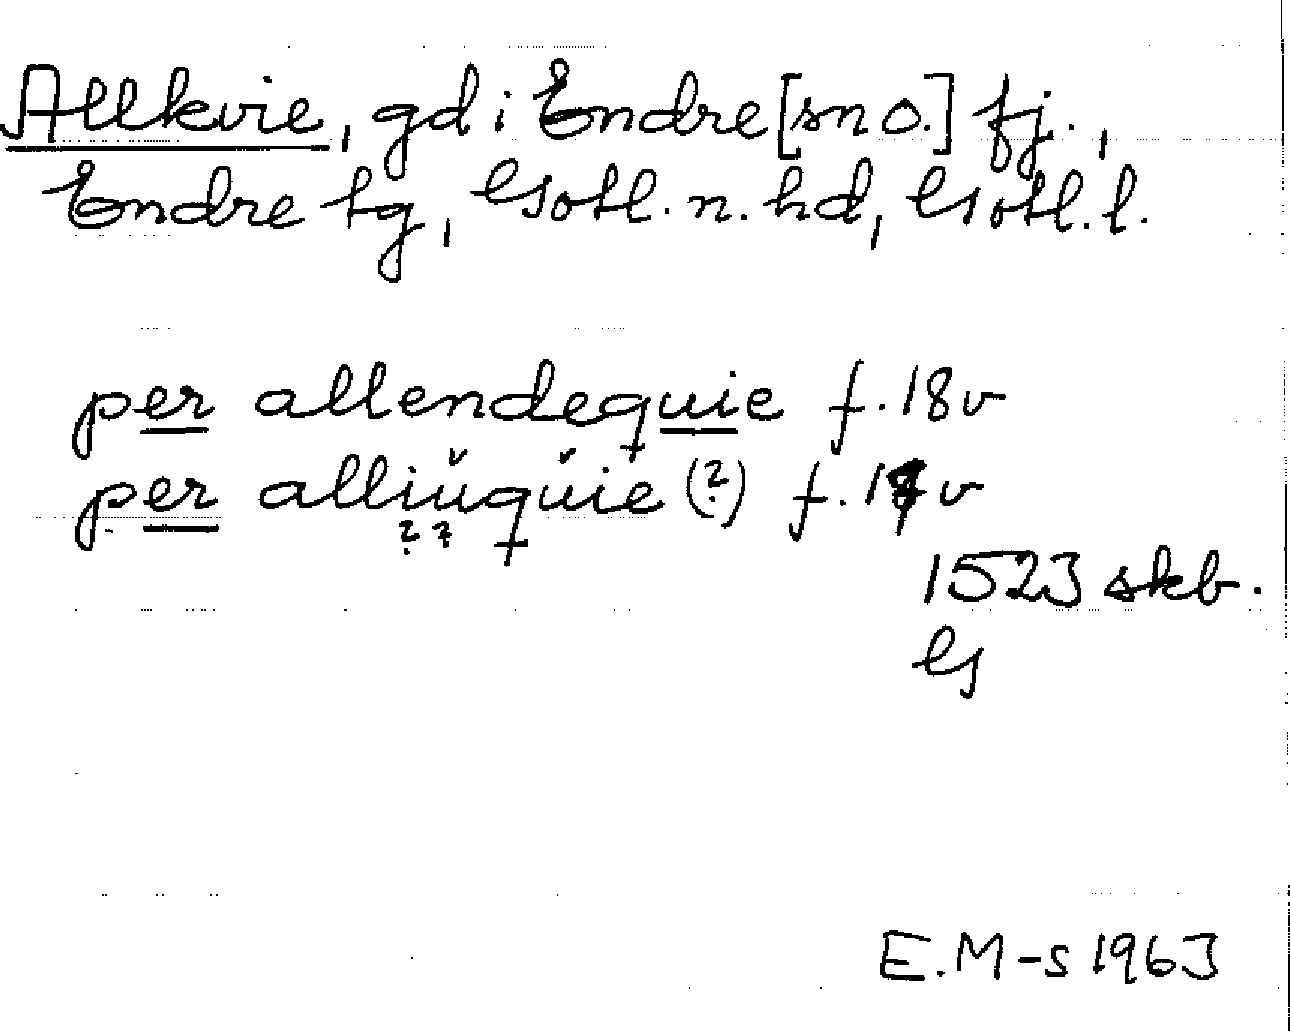 Allkvie, gd i Endre [sn o.] fj.,
Endre tg, Gotl. n. hd, Gotl. l.
per allendequie f. 18v
per alliŭqŭie (?) f. 17v
? ?
1523 skb.
G
E.M-s 1963